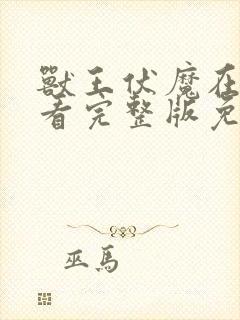 獸王伏魔在
看完整版免
巫馬